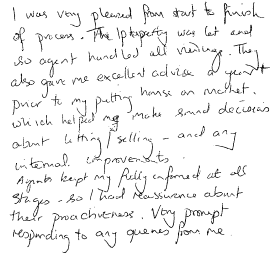 I was very pleased from start to finish
of process. The property was let and
so agent handled all viewings. They
also gave me excellent advise a year +
prior to my putting house on market.
which helped me make sound decisions
about letting/selling - and any
internal improvements.
Agents kept my fully informed at all
stages - so I had reassurance about
their proactiveness. Very prompt
responding to any queries from me.